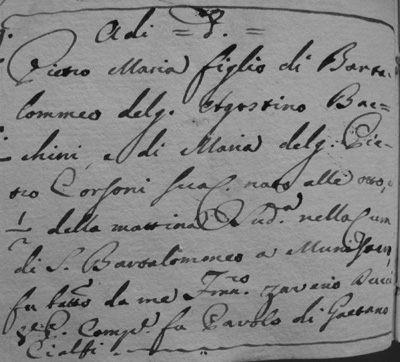 Adi = 8. =
Pietro Maria figlio di Barto=
lommeo del q. Agostino Bac=
chini, e di Maria del q. Pie=
tro Corsoni sua C. nato alle otto,
della mattina Sud.a nella Cura
di S. Bartolommeo a
fu batto. da me Franco.
Comp.e fu Pavolo di Gaetano
Cialfi